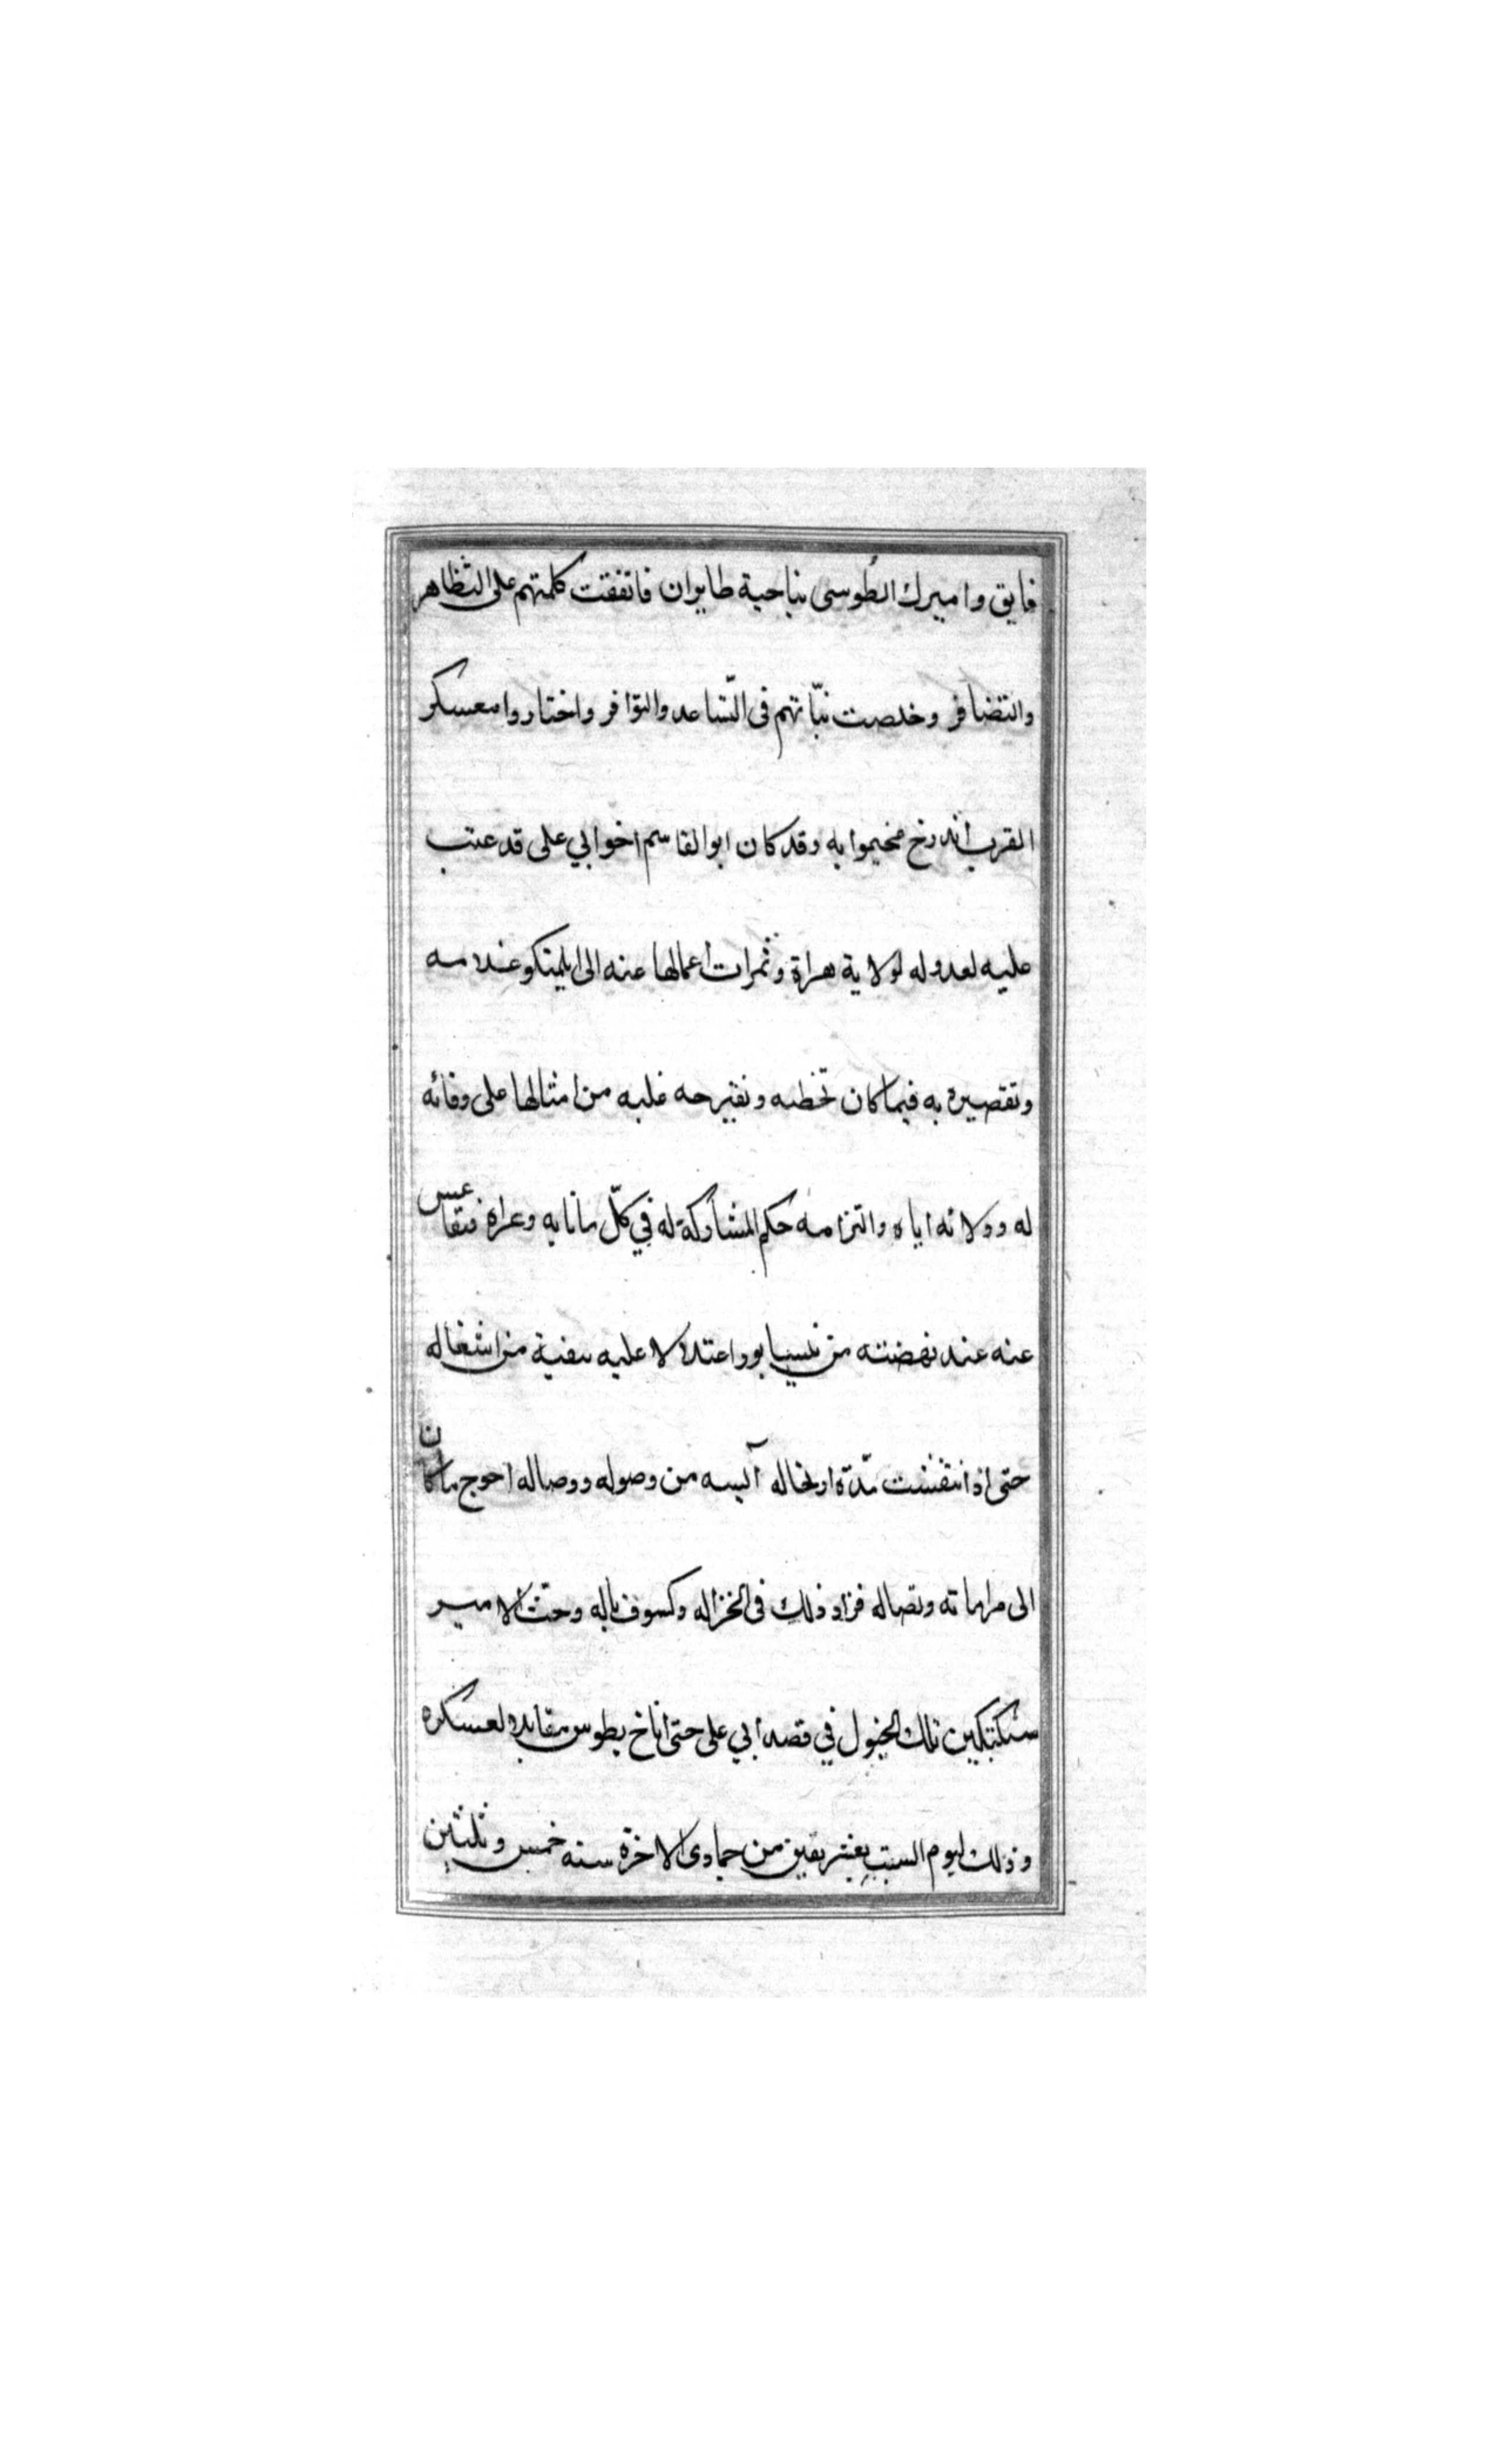 فايق واميرك الطوسى بناحية طابران فاتفقت كلمتهم على التظاهر
والتضافر وخلصت نيّاتهم فى التّساعد والتوافر واختاروا معسكر
القرب اندرخ فخيموا به وقد كان ابو القاسم اخو ابي على قد عتب
عليه لعدوله لولاية هراة وثمرات أعمالها عنه الى ايلمنكو غلامه
وتقصيره به فيما كان تخطبه ونقترحه عليه من امثالها على وفائه
له وولائه اياه والتزامه حكم المشاركة له في كلّ مانابه وعراه فتقاعس
عنه عند نهضته من نيسابور اعتلالا عليه ببقية من اشغاله
حتى اذا انتقضت مّدة ارتحاله آيسه من وصوله ووصاله احوج ما كان
الى مراماته ونضاله فزاد ذلك فى انخزاله وكسوف باله وحثّ الامير
سبكتكين تلك الخيول في قصد ابي على حتى اناخ بطوس مقابلا لعسكره
وذلك ليوم السبت بعشر بقين من جمادى الاخرة سنه خمس وثلثين